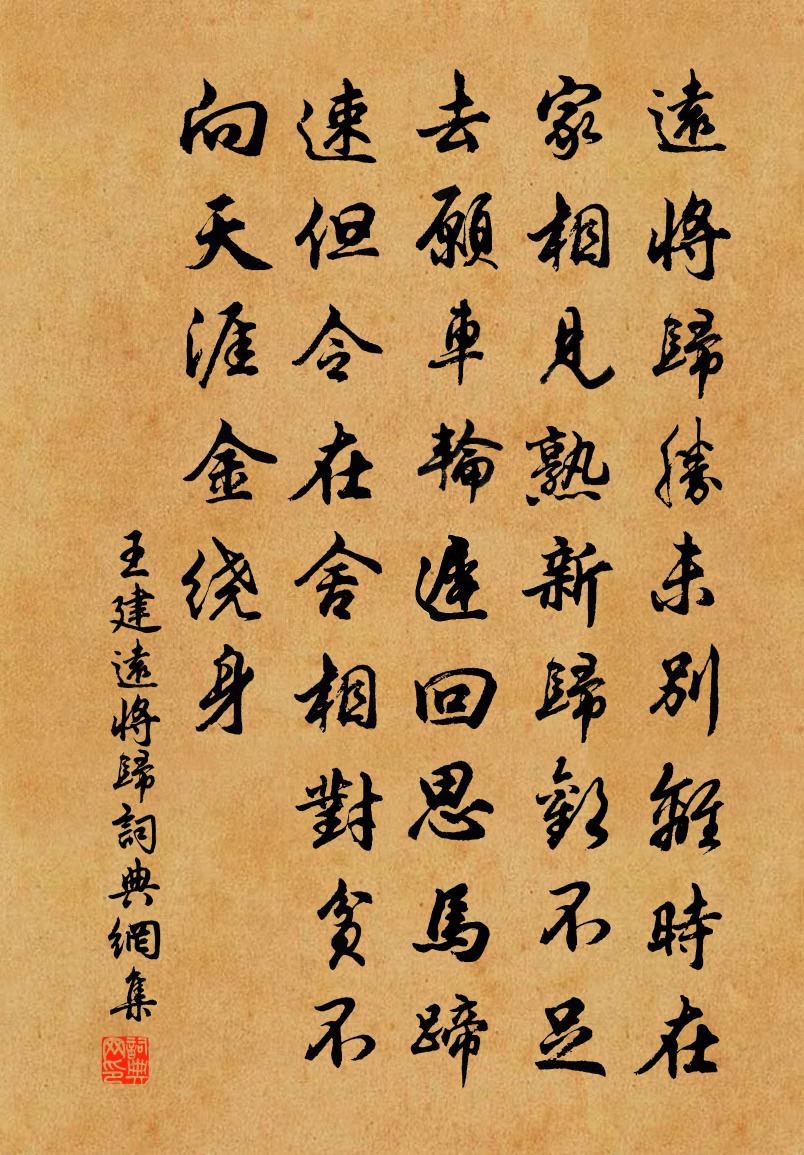 遠將歸勝未別離時在
家相見熟新歸歡不足
去願車輪遲回思馬蹄
速但令在舍相對貧不
向天涯金绕身
王建遠將歸詞典網集
詞典
网印